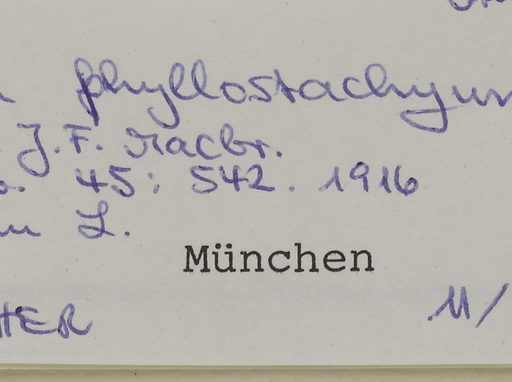 phyllostachyum
J.F. Macbr.
45: 542. 1916
L.
München
HER
11/